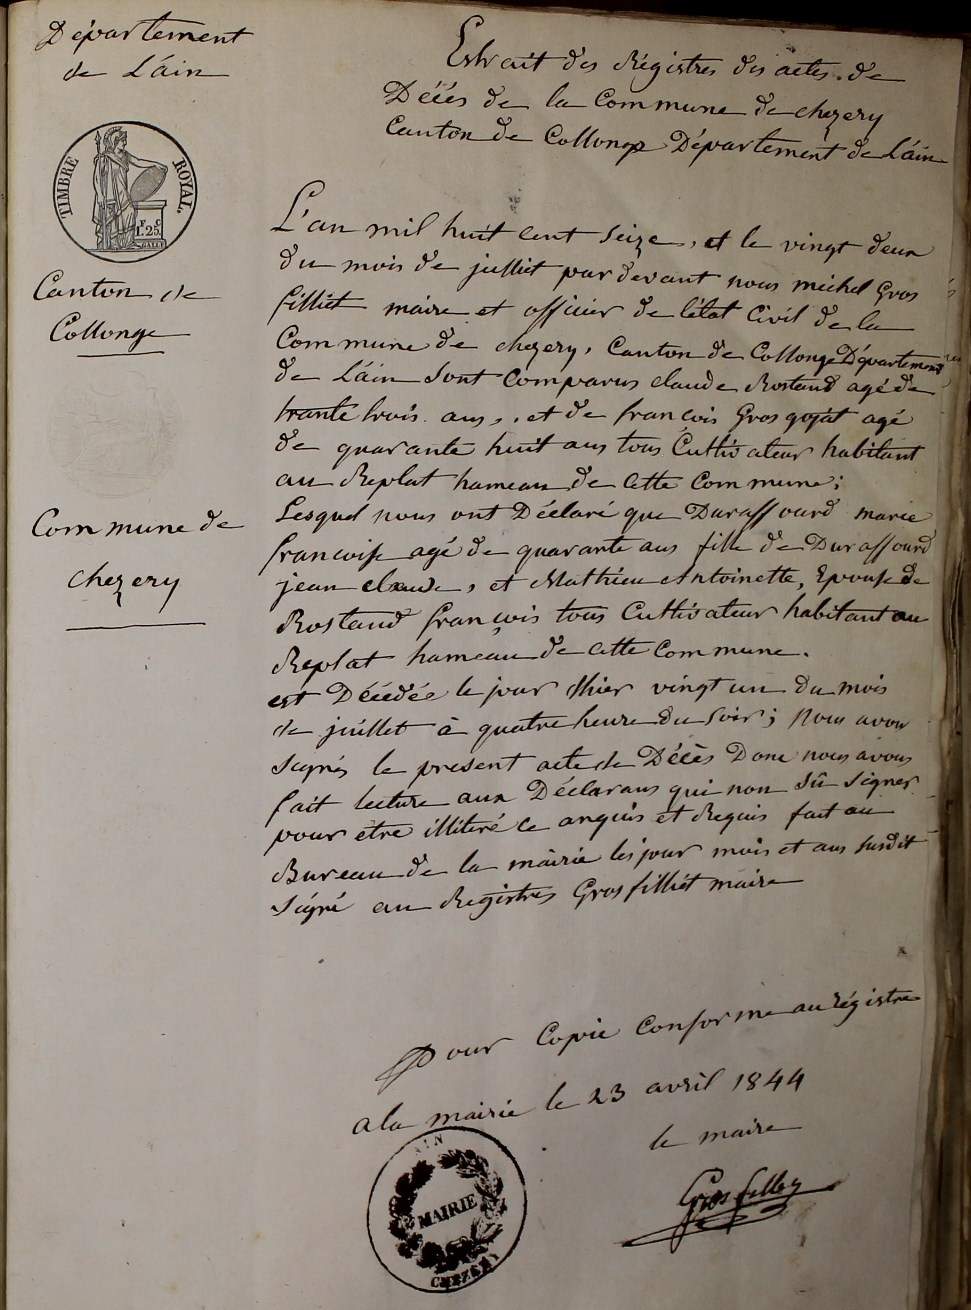 Département
de L'áin
TIMBRE ROYAL.
F. C
1.25
Canton de
Collonge
Commune de
chezery
Extrait des Régistres des actes de
Décés de la Commune de chezery
Canton de Collonge Département de L'áin
L'an mil huit cent seize, et le vingt deux
du mois de julliet par devant nous michel Gros
filliet maire et officier de l'état Civil de la
Commune de chezery, Canton de Collonge Département
de L'áin Sont Comparus claude Rostand agé de
trante trois ans, et de françois Gros gojat agé
de quarante huit ans tous Cultivateur habitant
au Replat hameau de cette Commune;
Lesquel nous ont Déclaré que Duraffourd marie
françoise agé de quarante ans fille de Duraffourd
jean claude, et Mathieu Antoinette, Epouse de
Rostand françois tous Cultivateur habitant au
Replat hameau de cette Commune.
est Décédée le jour d'hier vingt un du mois
de juillet à quatre heure du soir; Nous avon
signés le present acte de Décès Donc nous avous
fait lecture aux Déclarans qui non sû signer
pour etre illitéré ce anquis et Requis fait au
Bureau de la mairie les jour mois et ans susdit
signé au Registres Gros filliét maire
Pour Copie Conforme au régistre
a la mairie le 23 avril 1844
le maire
Gros filley
AIN
MAIRIE
CHEZERY